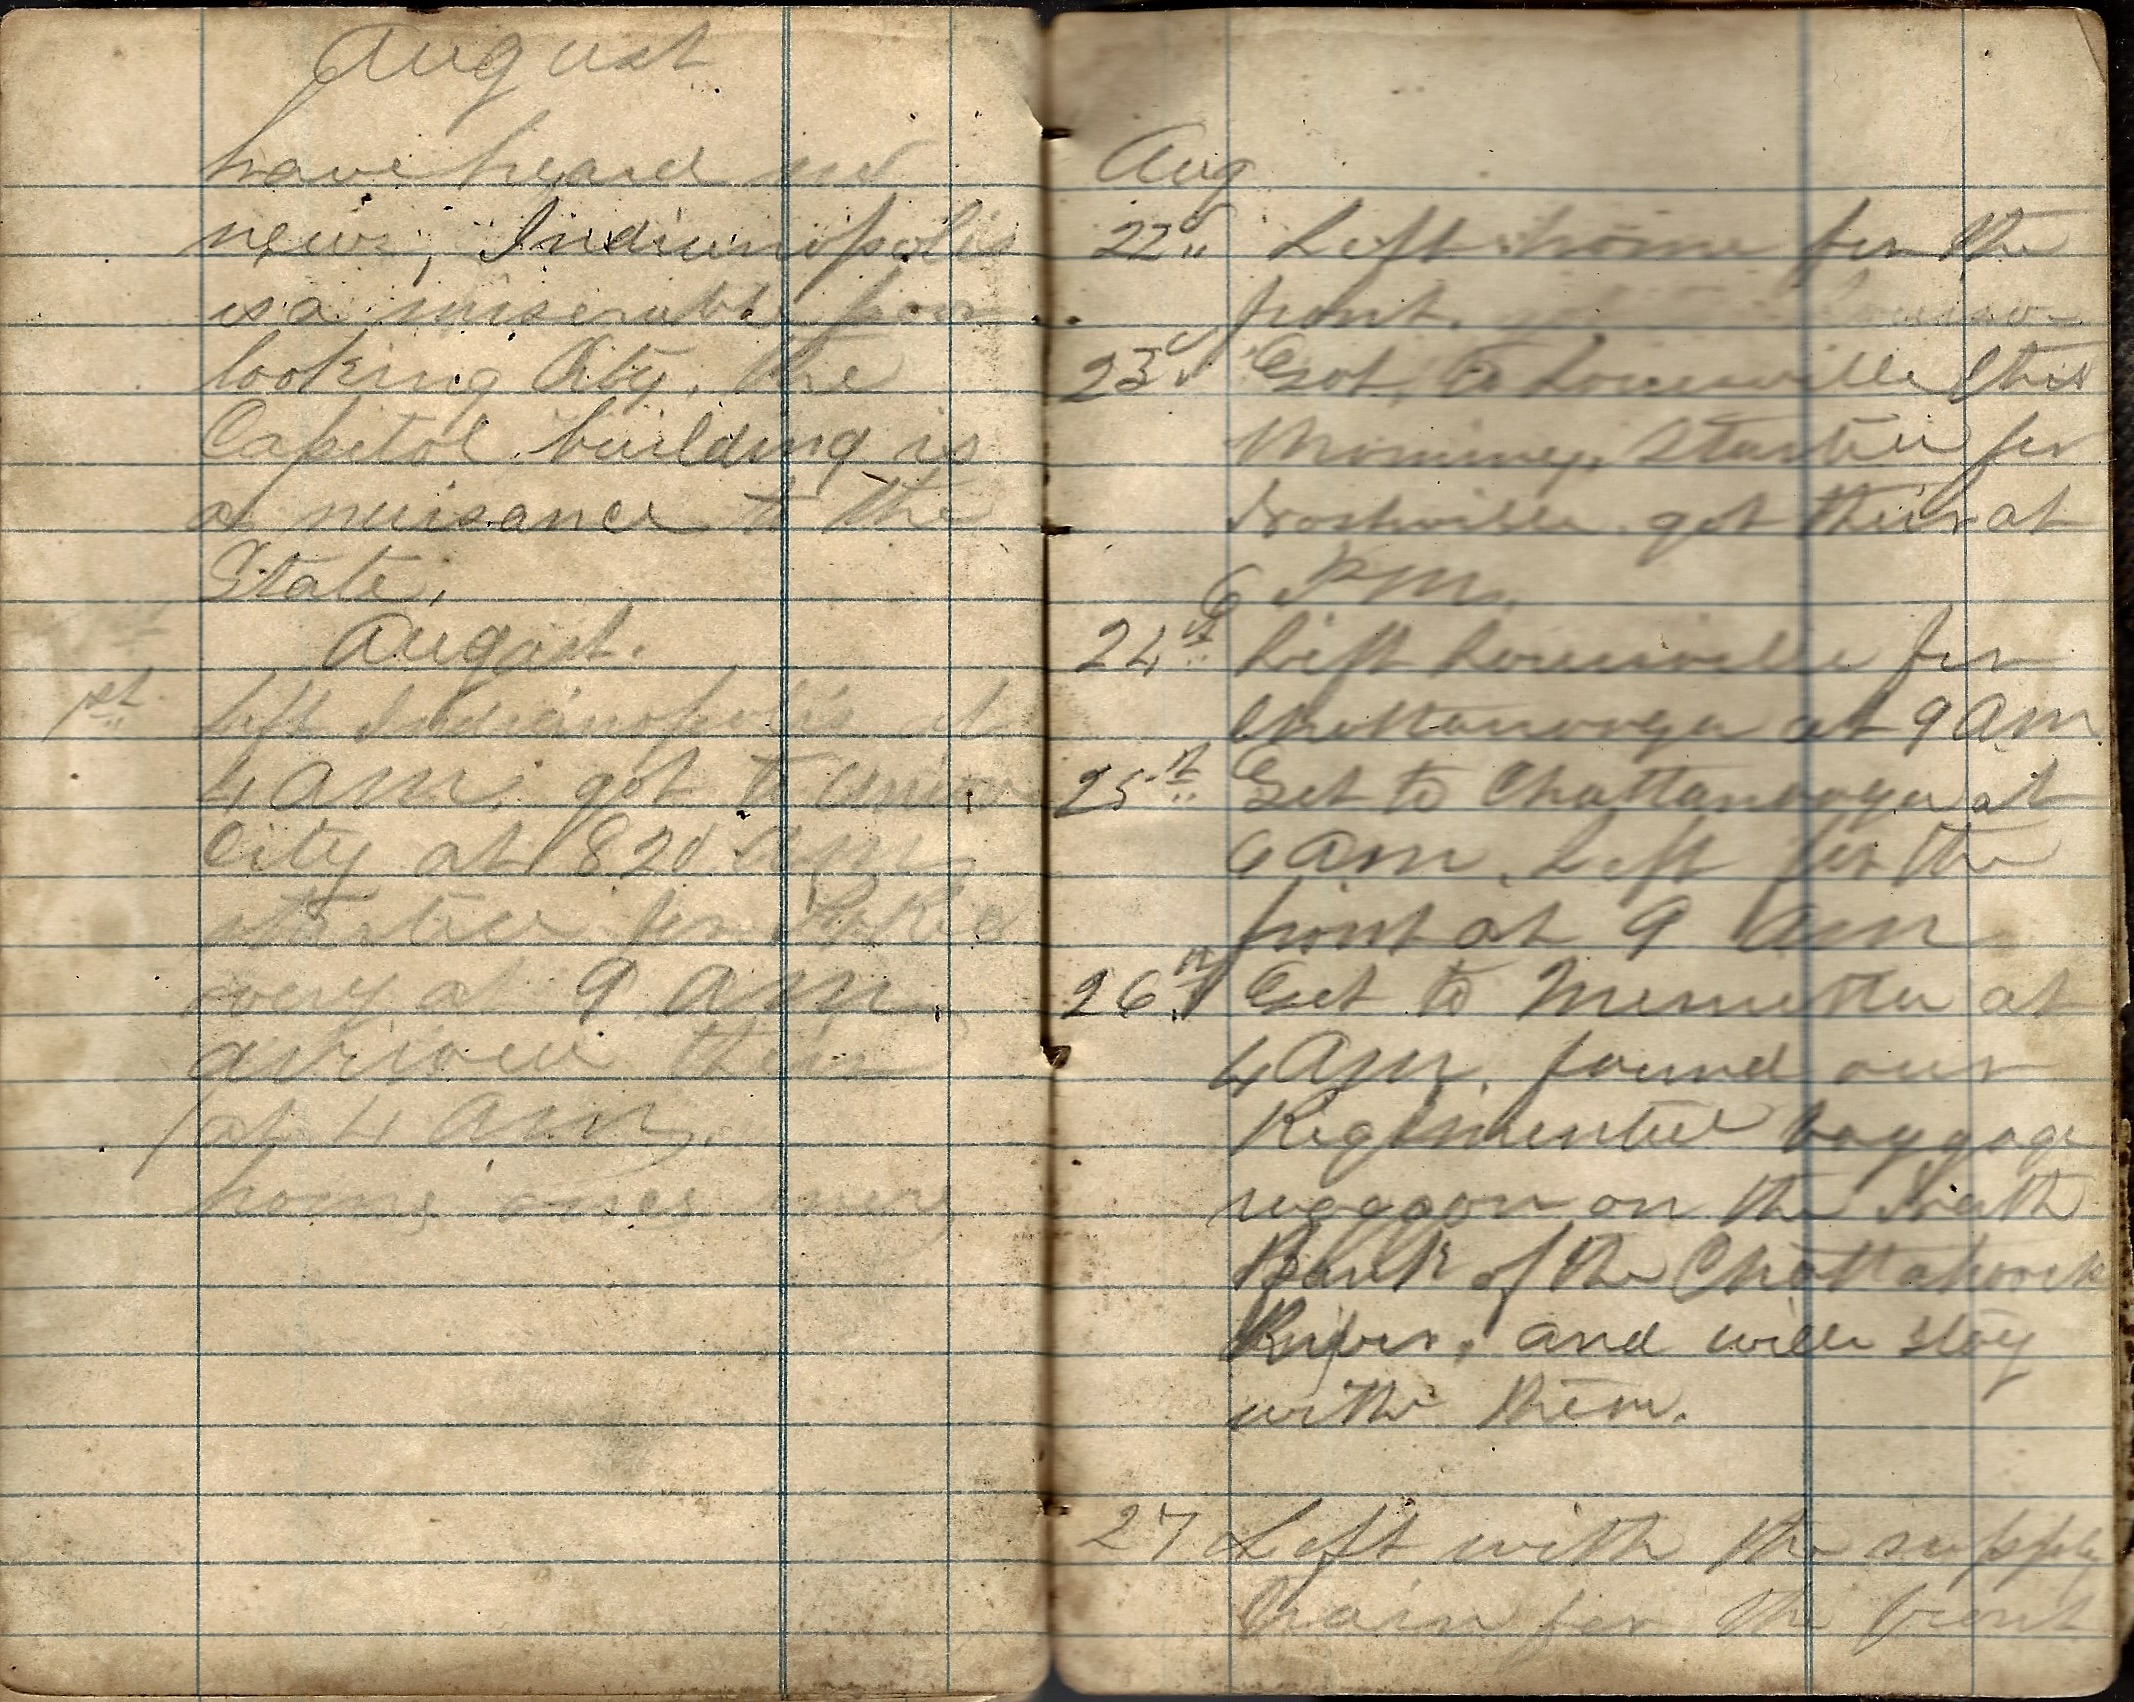 August
have heard no
news, Indianopolis
is a miserable poor
looking City, the
Capitol building is
a nuisance to the
State.
August.
1st Left Indianopolis at
4 am. got to Union
City at 820 am
started for
at 9 am.
arrived their
at 4 am.
home once more
Aug
22d Left home for the
front.
23d Got to Louisville this
Morning. Started for
Nashville. got their at
6 P.m.
24th Left Louisville for
Chattanooga at 9 am
25th Get to Chattanooga at
6 am. Left for the
front at 9 am
26th Get to Marrietta at
4 am. found our
Regimental baggage
waggon on the North
Bank of the
River, and will stay
with them.
27 Left with the supply
train for the front